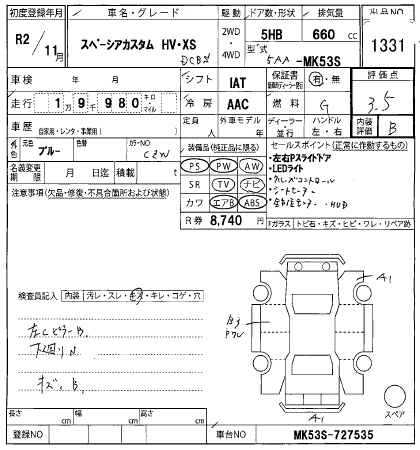 初度登録年月 車名・グレード 駆動 ドア数・形状 排気量 出品NO
R2/11月 スペーシアカスタム HV・XS 2WD・4WD 5HB 660 cc 1331
DCBN 型式 5AA-MK53S
車検 年 月 シフト IAT 保証書 有・無 評価点
走行 1万9千980 キロ・マイル 冷房 AAC 燃料 G 3.5
車歴 自家用・レンタ・事業用( ) 定員 人 外車モデル 年 ディーラー・並行 ハンドル 左・右 内装評価 B
外色 元色 ブルー 色替 カラーNO CZW
装備品(純正品に限る) セールスポイント(正常に作動するもの)
名義変更期限 月 日迄 積載 t
PS PW AW
・左右Pスライドドア
・LEDライト
注意事項(欠品・修復・不具合箇所および状態)
SR TV ナビ
・クルーズコントロール
・シートヒーター
カワ エアB ABS
・全方位モニター・HUD
R券 8,740 円
Fガラス トビ石・キズ・ヒビ・ワレ・リペア跡
検査員記入 内装 汚レ・スレ・キズ・キレ・コゲ・穴
A1
左Cピラー B.
下廻り N
キズ。B.
A1
スペア
長さ cm 幅 cm 高さ cm
登録NO 車台NO MK53S-727535